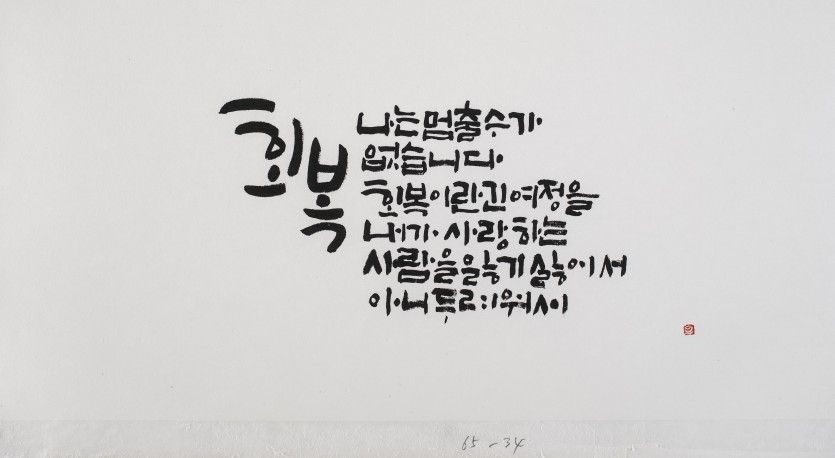 회복
나는 멈출 수가
없습니다.
회복이란 긴 여정을
내가 사랑하는
사람을 잃기 싫어서
아니 두려워서
65-34